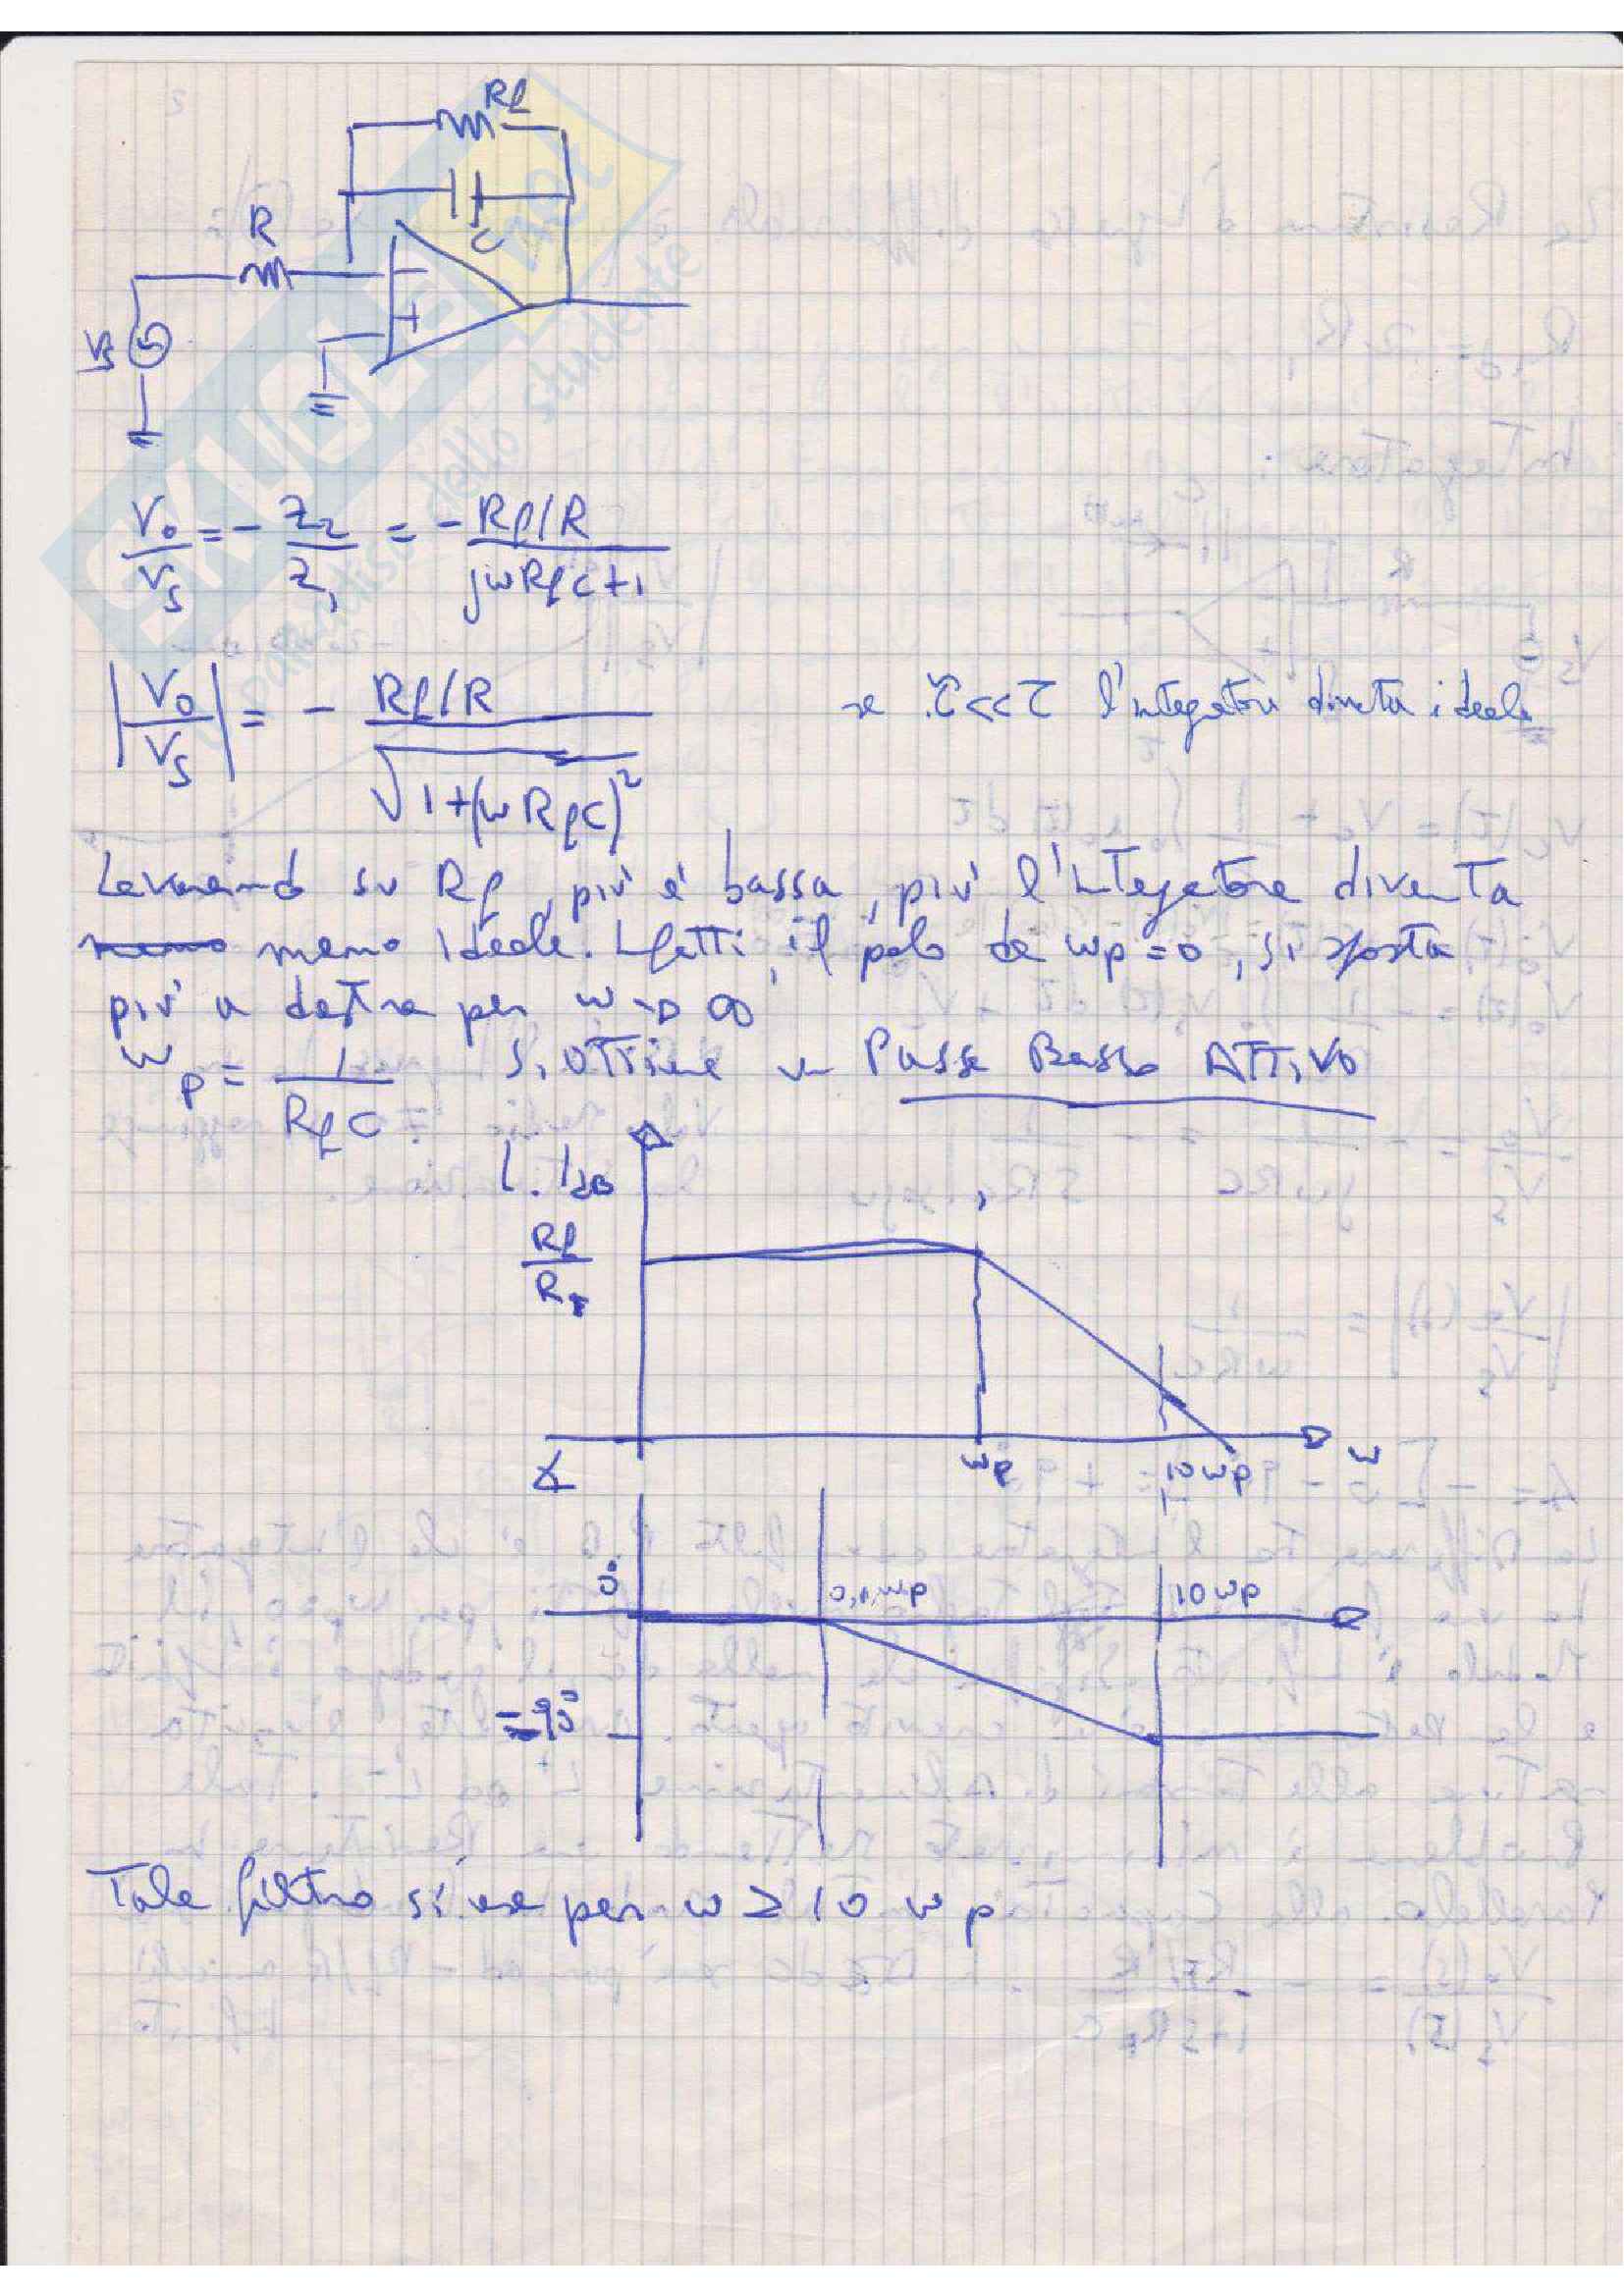 Rf
C
R
Vs
-
+
Vo/Vs = - Z2/Z1 = - Rf/R / jωRfC+1
|Vo/Vs| = - Rf/R / √1+(ωRfC)² se τ<<τ l'integratore diventa ideale
Lavorando su Rf, piu' e' bassa, piu' l'integratore diventa
meno ideale. Infatti, il polo da ωp=0, si sposta
piu' a destra per ω→∞
ωp = 1/RfC Si ottiene un Passa Basso ATTIVO
|.|dB
Rf/R1
ωp 10ωp ω
∡
0° 0,1ωp 10ωp
-90°
Tale filtro si usa per ω ≥ 10 ωp
SKUOLA.net
paradiso dello studente